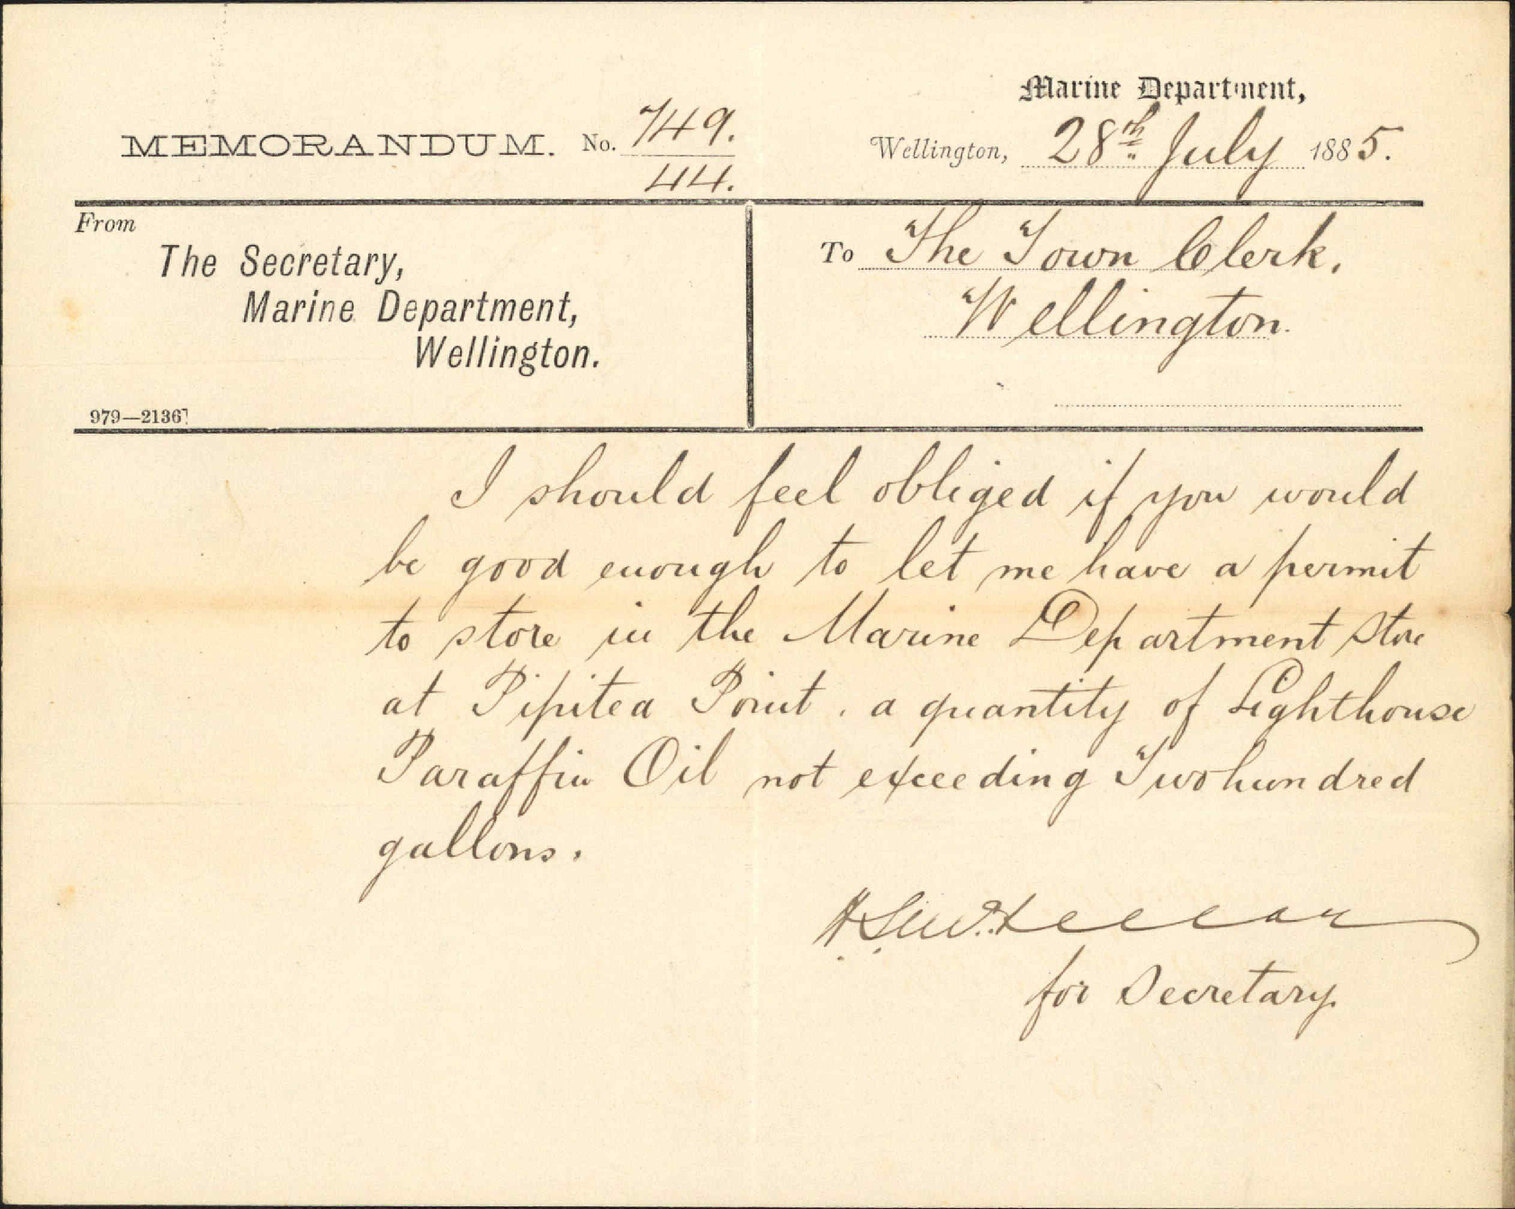 Marine Department,
MEMORANDUM. No. 749.
44.
Wellington, 28th July 1885.
From
The Secretary,
Marine Department,
Wellington.
979—2136]
To The Town Clerk.
Wellington.
I should feel obliged if you would
be good enough to let me have a permit
to store in the Marine Department Store
at Pipitea Point. a quantity of Lighthouse
Paraffin Oil not exceeding Two hundred
gallons.
for Secretary.